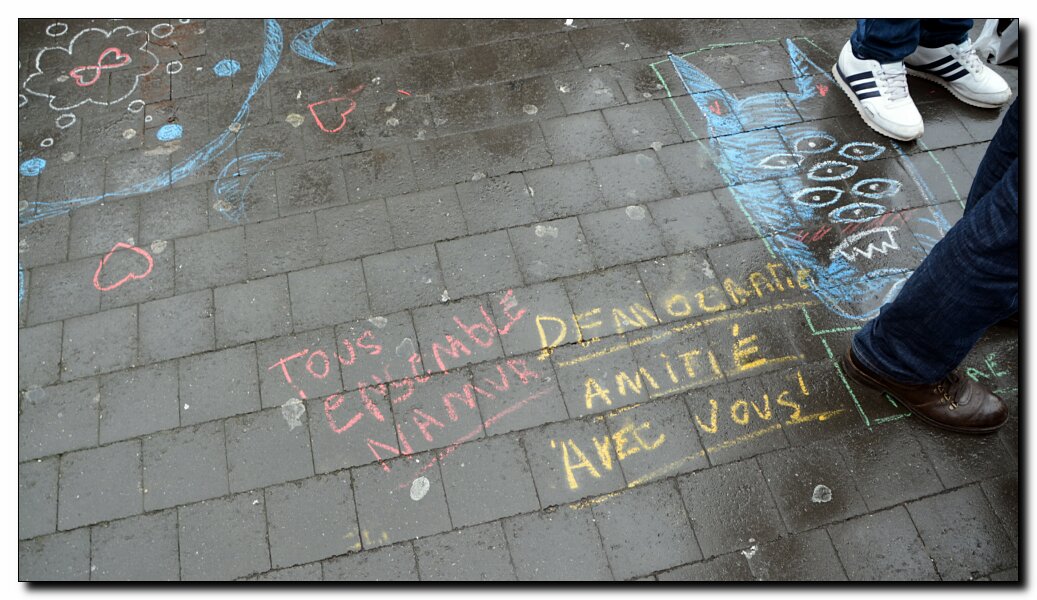 TOUS
ENSEMBLE
NAMUR
DEMOCRATIE
AMITIÉ
AVEC VOUS!